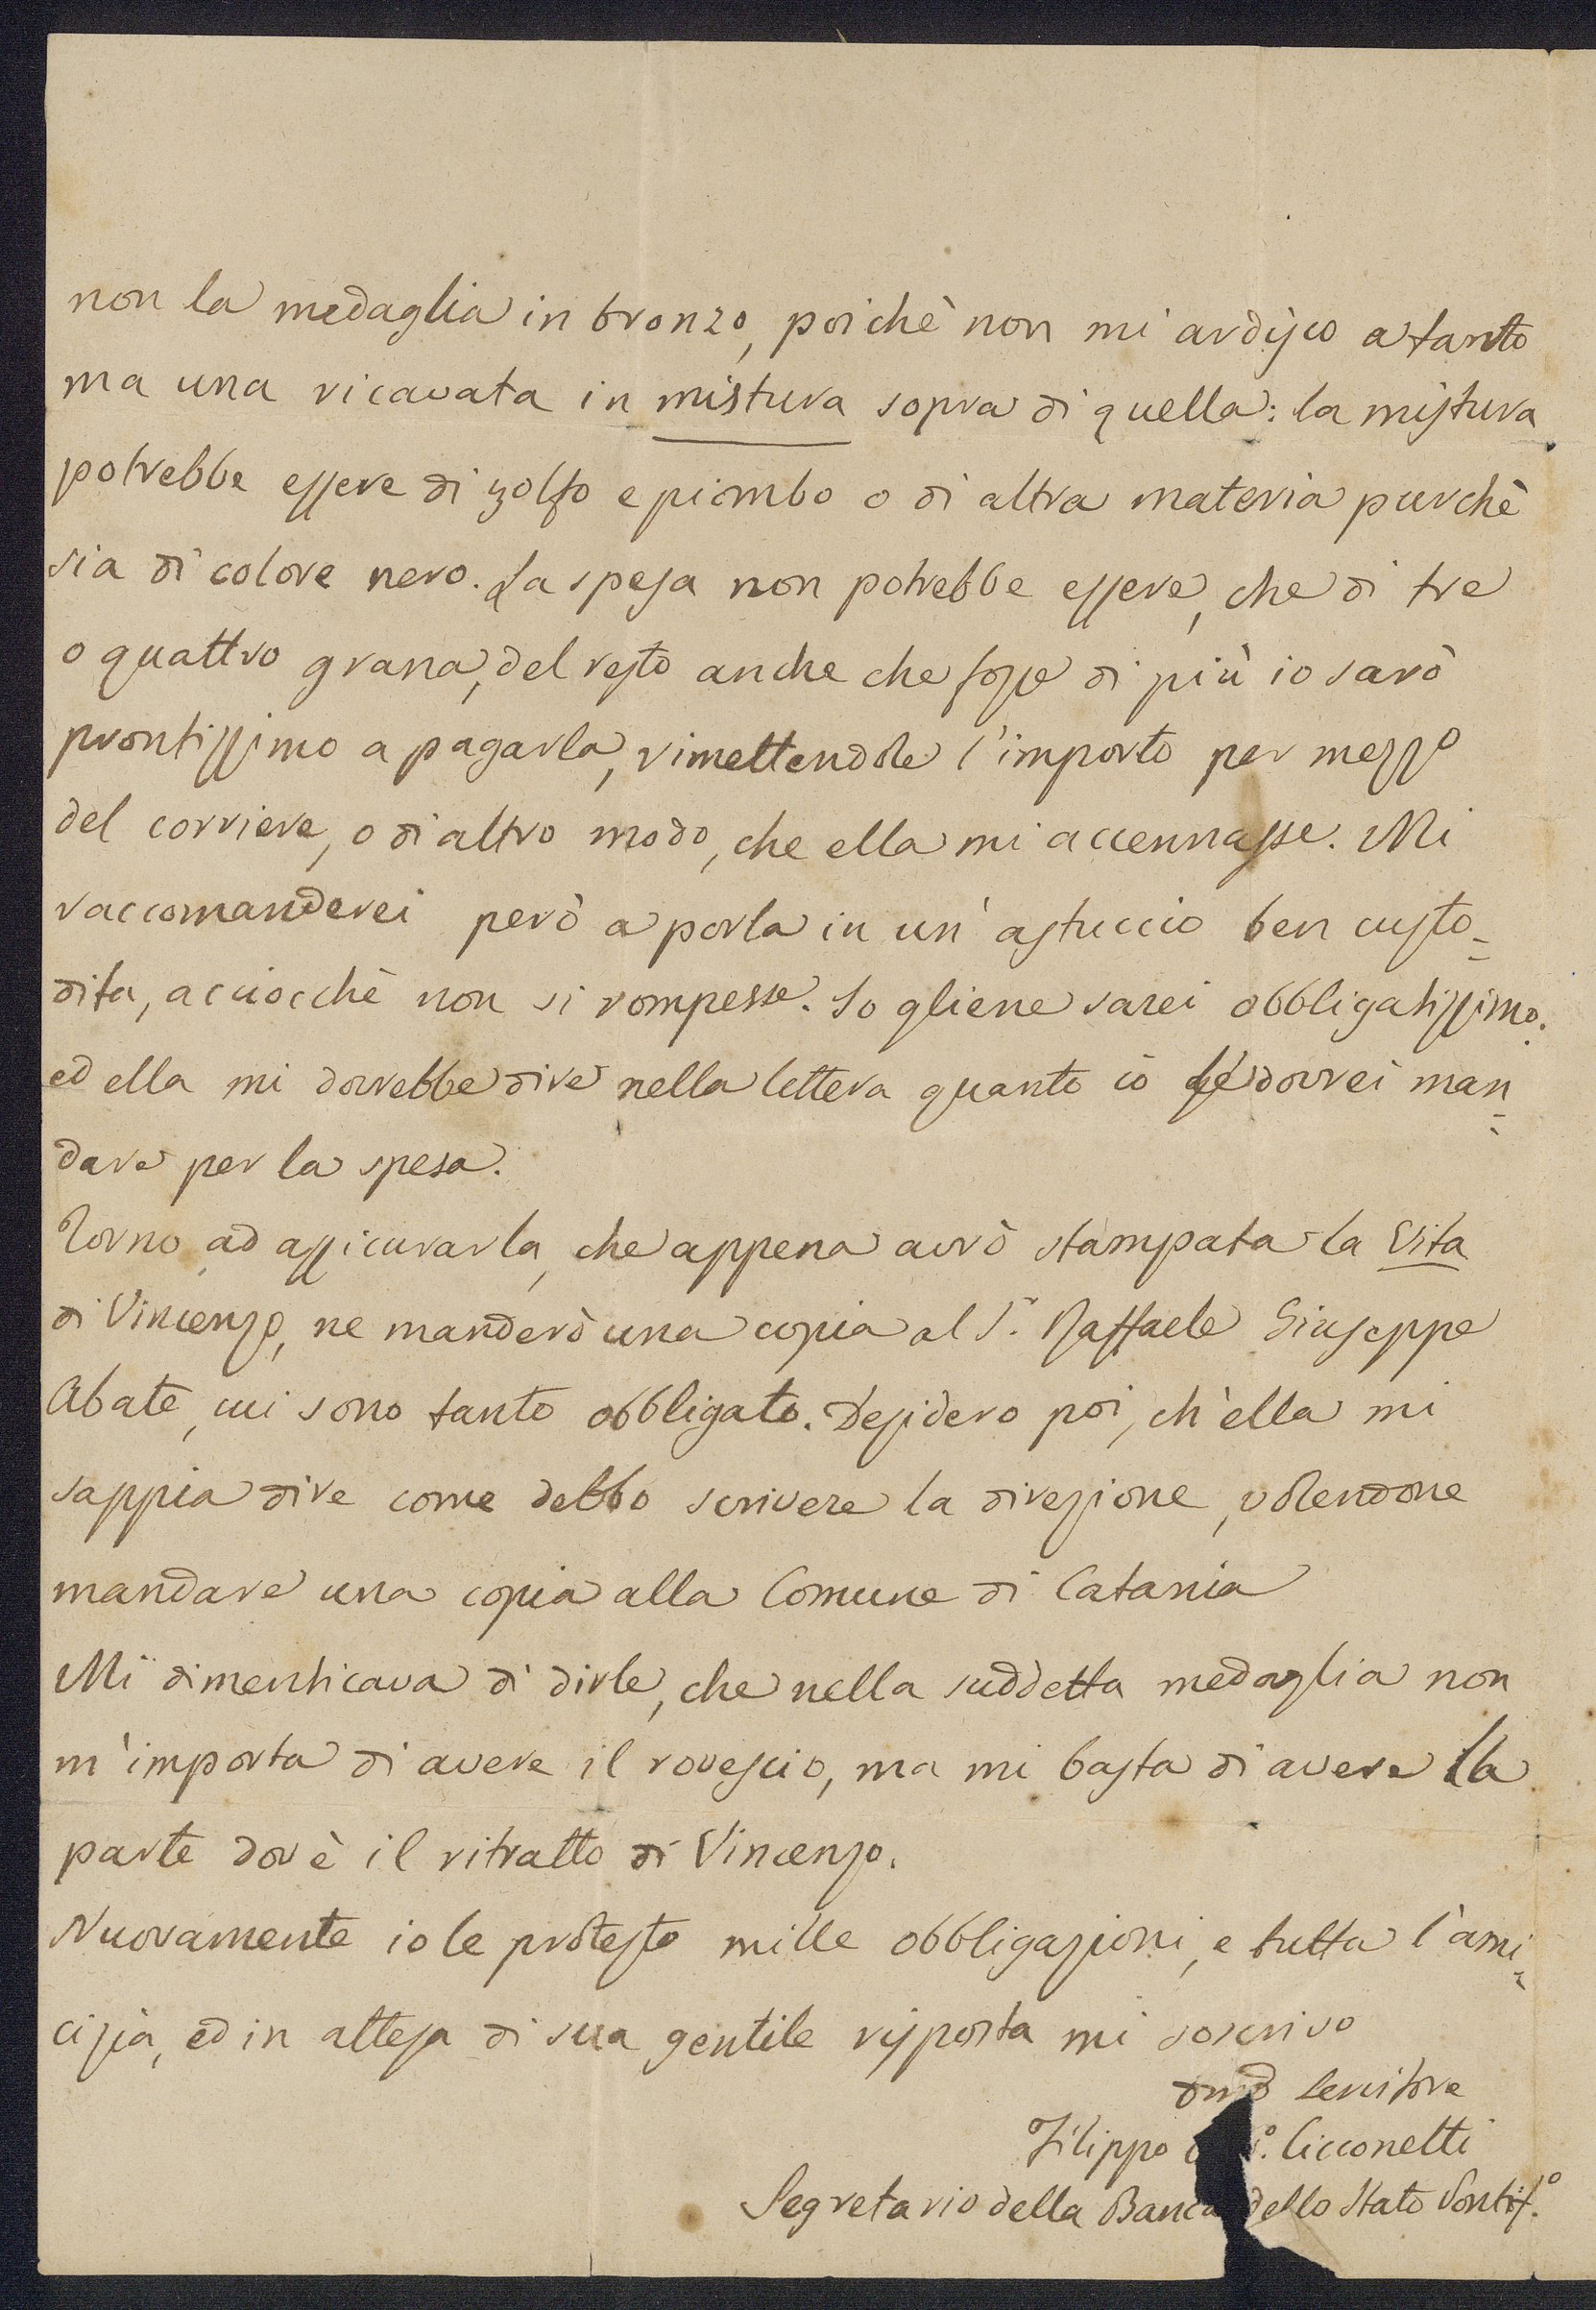 non la medaglia in bronzo, poichè non mi ardisco a tanto
ma una ricavata in mistura sopra di quella: la mistura
potrebbe essere di zolfo e piombo o di altra materia purchè
sia di colore nero. La spesa non potrebbe essere, che di tre
o quattro grana, del resto anche che fosse di più io sarò
prontissimo a pagarla, rimettendole l'importo per mezzo
del corriere, o di altro modo, che ella mi accennasse. Mi
raccomanderei però a porla in un' astuccio ben custo=
dita, acciocchè non si rompesse. Io gliene sarei obbligatissimo.
ed ella mi dovrebbe dire nella lettera quanto io le dovrei man=
dare per la spesa.
Torno ad assicurarla, che appena avrò stampata la Vita
di Vincenzo, ne manderò una copia al S.r Raffaele Giuseppe
Abate, cui sono tanto obbligato. Desidero poi, ch'ella mi
sappia dire come debbo scrivere la direzione, volendone
mandare una copia alla Comune di Catania
Mi dimenticava di dirle, che nella suddetta medaglia non
m'importa di avere il rovescio, ma mi basta di avere la
parte dov'è il ritratto di Vincenzo.
Nuovamente io le protesto mille obbligazioni, e tutta l'ami=
cizia, ed in attesa di sua gentile risposta mi soscrivo
servitore
Filippo Cicconetti
Segretario della Banca dello Stato Pontif.o